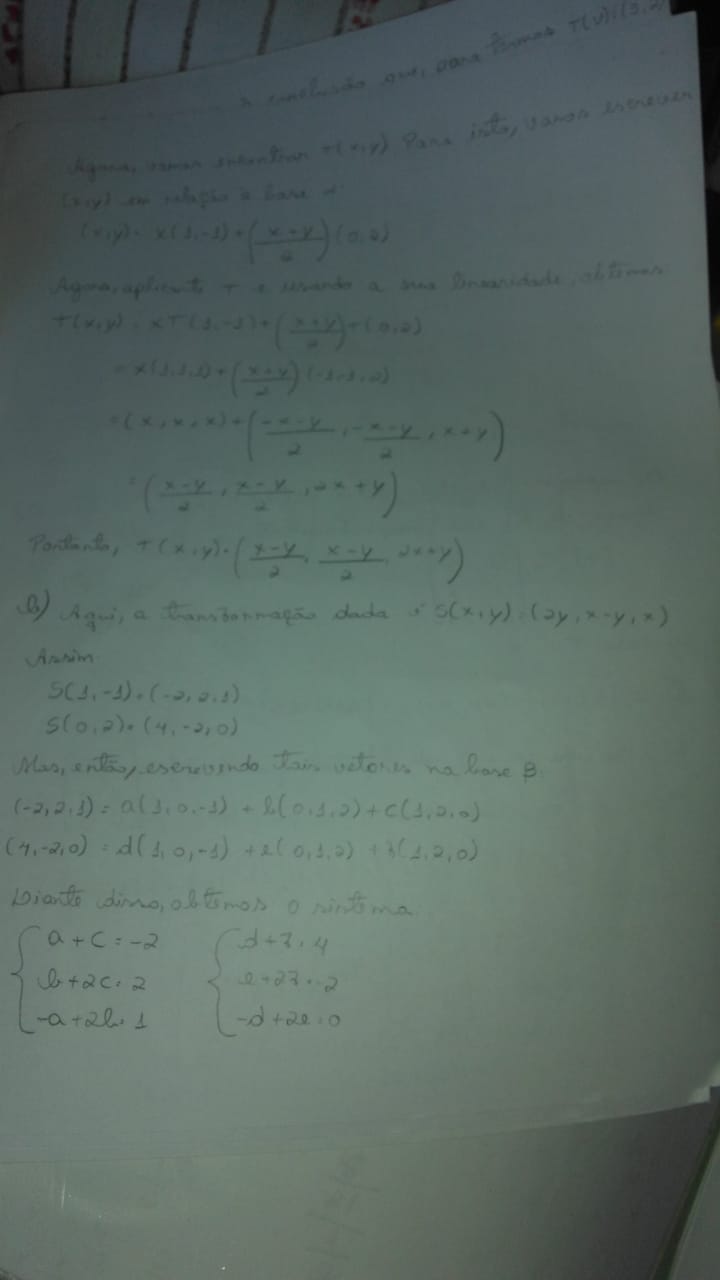 a conclusão que, para termos T(v)=(3,2
Agora, vamos encontrar T(x,y) Para isto, vamos escrever
(x,y) em relação a base α
(x,y)= x(1,-1)+(x+y/2)(0,2)
Agora, aplicando T e usando a sua linearidade, obtemos
T(x,y)= xT(1,-1)+(x+y/2)T(0,2)
= x(1,1,1)+(x+y/2)(-1,-1,2)
=(x,x,x)+(-x-y/2, -x-y/2, x+y)
=(x-y/2, x-y/2, 2x+y)
Portanto, T(x,y)=(x-y/2, x-y/2, 2x+y)
b) Aqui, a transformação dada é S(x,y)=(2y,x-y,x)
Assim
S(1,-1)=(-2,2,1)
S(0,2)=(4,-2,0)
Mas, então, escrevendo tais vetores na base β
(-2,2,1)= a(1,0,-1) + b(0,1,2)+c(1,2,0)
(4,-2,0) = d(1,0,-1) +e(0,1,2) +f(1,2,0)
Diante disso, obtemos o sistema
a+c=-2 d+f=4
b+2c=2 e+2f=-2
-a+2b=1 -d+2e=0